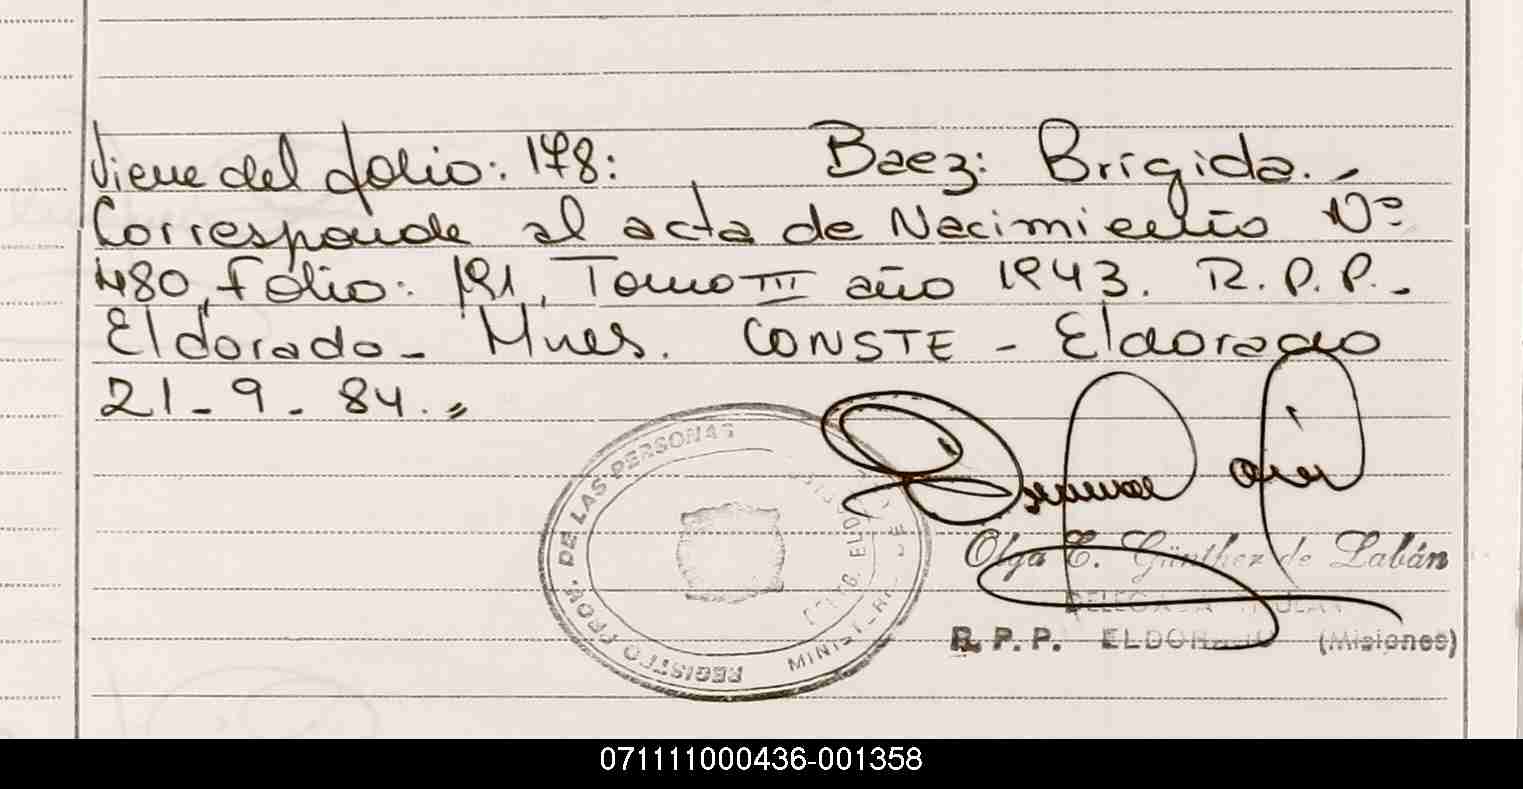 Viene del folio: 178: Baez: Brígida.-
Corresponde al acta de Nacimiento Nº
480, Folio: 191, Tomo III año 1943. R.P.P.-
Eldorado- Mnes. CONSTE - Eldorado
21-9-84.,
REGISTRO PROV. DE LAS PERSONAS
Olga E. Günther de Labán
DELEGADA TITULAR
R. P. P. ELDORADO (Misiones)
071111000436-001358